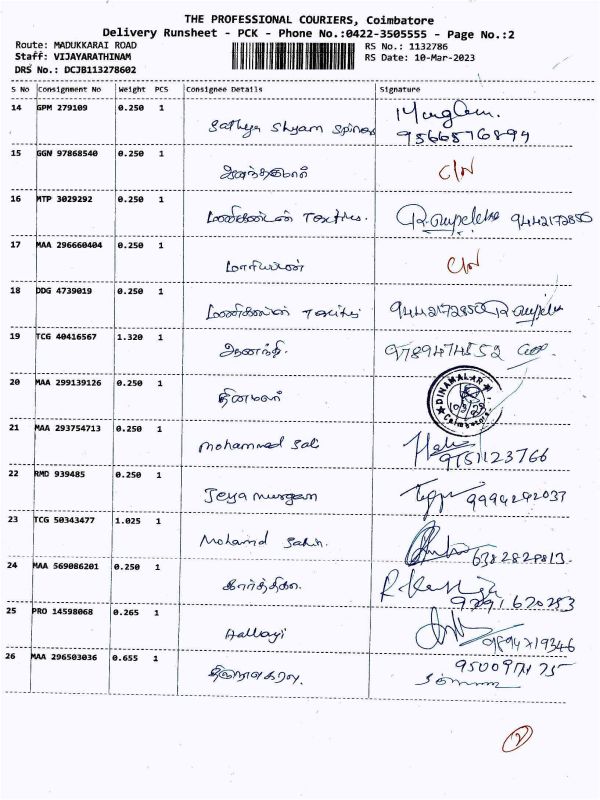 THE PROFESSIONAL COURIERS, Coimbatore
Delivery Runsheet - PCK - Phone No.:0422-3505555 - Page No.:2
Route: MADUKKARAI ROAD RS No.: 1132786
Staff: VIJAYARATHINAM RS Date: 10-Mar-2023
DRS No.: DCJB113278602
S No Consignment No Weight PCS Consignee Details Signature
14 GPM 279109 0.250 1
Sathya Shyam Spinos 9566576899
15 GGN 97868540 0.250 1
C/N
16 MTP 3029292 0.250 1
மணிகண்டன் Textiles. 9442172855
17 MAA 296660404 0.250 1
மாரியப்பன் C/N
18 DDG 4739019 0.250 1
மணிகண்டன் Textiles 944217285
19 TCG 40416567 1.320 1
ஆனந்தி. 9789474552
20 MAA 299139126 0.250 1
தினமலர் DINAMALAR Coimbatore
21 MAA 293754713 0.250 1
Mohammed Sali 9751123766
22 RMD 939485 0.250 1
Jeya murgam 9994292037
23 TCG 50343477 1.025 1
Mohamd Sahin. 6382828813
24 MAA 569086201 0.250 1
கார்த்திகை 9791620253
25 PRO 14598068 0.265 1
Aallayi 9894219346
26 MAA 296503036 0.655 1
9500971175
2